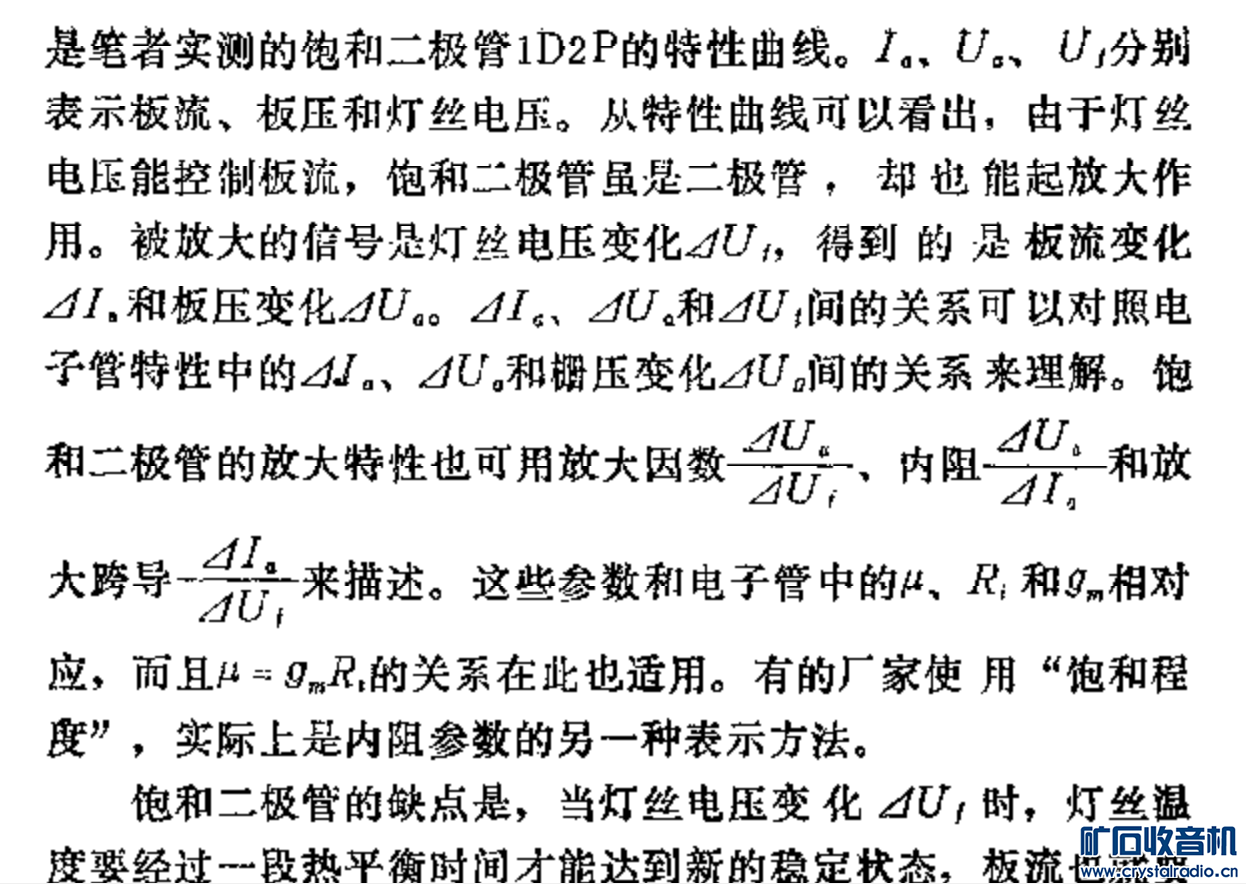 是笔者实测的饱和二极管1D2P的特性曲线。Iₐ、Uₐ、U_f分别
表示板流、板压和灯丝电压。从特性曲线可以看出，由于灯丝
电压能控制板流，饱和二极管虽是二极管，却也能起放大作
用。被放大的信号是灯丝电压变化ΔU_f，得到的是板流变化
ΔIₐ和板压变化ΔUₐ。ΔIₐ、ΔUₐ和ΔU_f间的关系可以对照电
子管特性中的ΔIₐ、ΔUₐ和栅压变化ΔU_g间的关系来理解。饱
和二极管的放大特性也可用放大因数ΔUₐ/ΔU_f、内阻ΔUₐ/ΔIₐ和放
大跨导ΔIₐ/ΔU_f来描述。这些参数和电子管中的μ、Rᵢ和gₘ相对
应，而且μ=gₘRᵢ的关系在此也适用。有的厂家使用“饱和程
度”，实际上是内阻参数的另一种表示方法。
饱和二极管的缺点是，当灯丝电压变化ΔU_f时，灯丝温
度要经过一段热平衡时间才能达到新的稳定状态，板流也
矿石收音机
www.crystalradio.cn